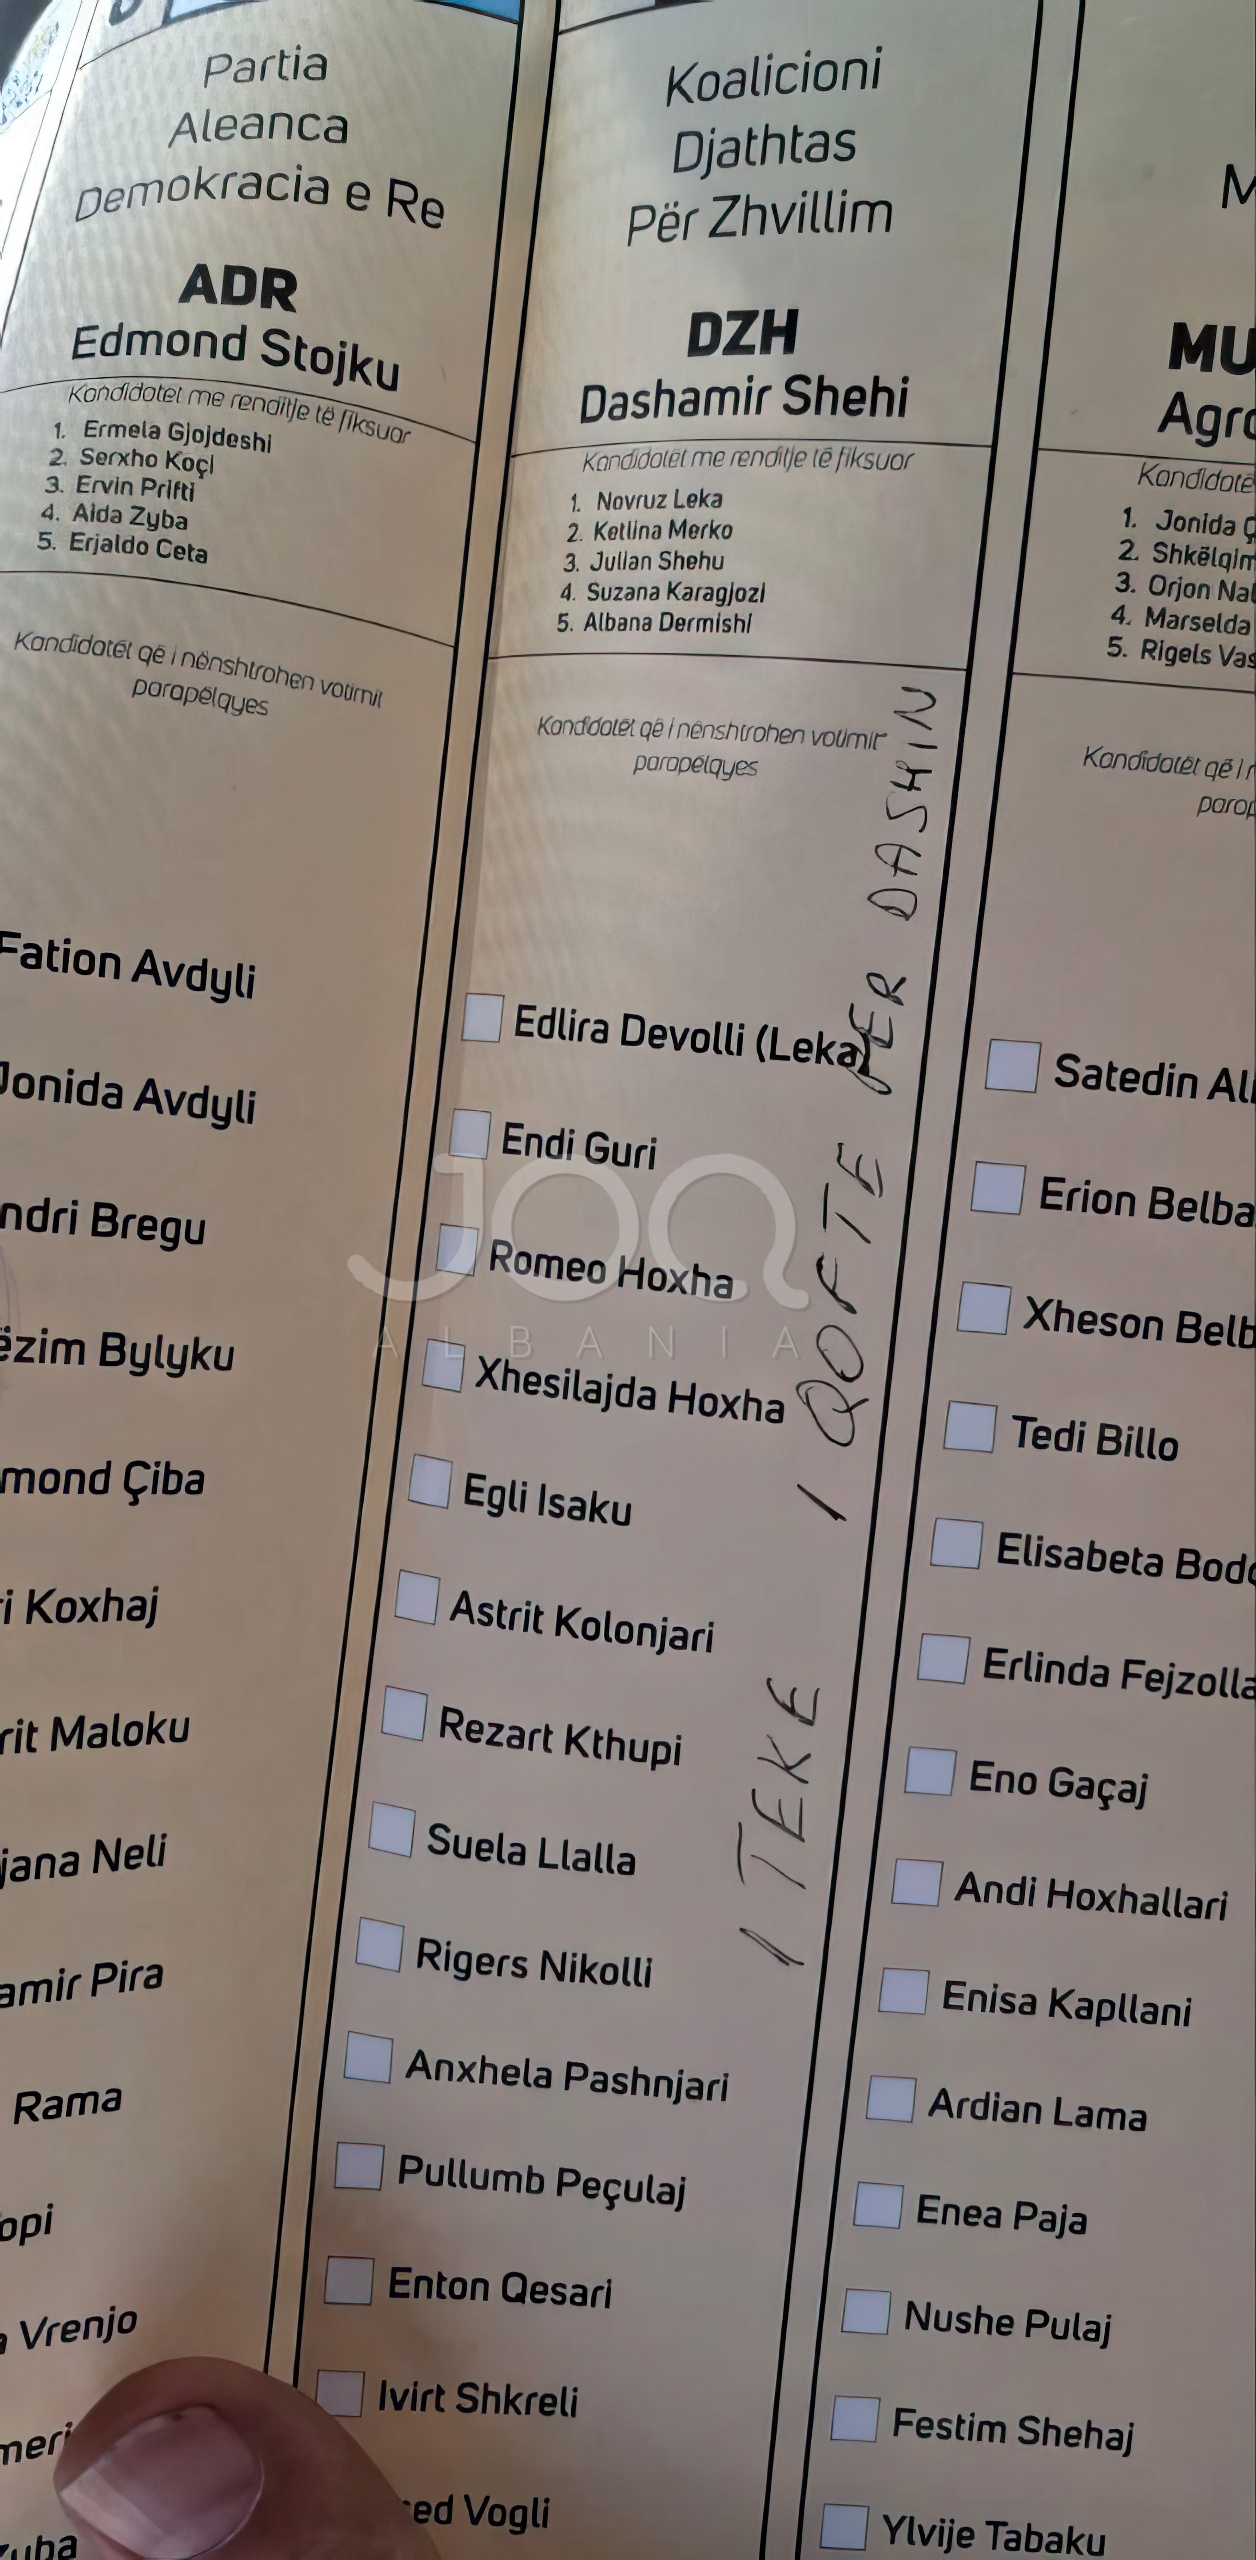 Partia
Aleanca
Demokracia e Re
ADR
Edmond Stojku
Kandidatët me renditje të fiksuar
1. Ermela Gjojdeshi
2. Serxho Koçi
3. Ervin Prifti
4. Aida Zyba
5. Erjaldo Ceta
Kandidatët që i nënshtrohen votimit
parapëlqyes
Fation Avdyli
Jonida Avdyli
ndri Bregu
ëzim Bylyku
mond Çiba
i Koxhaj
rit Maloku
jana Neli
amir Pira
Rama
opi
Vrenjo
meri
zuba
Koalicioni
Djathtas
Për Zhvillim
DZH
Dashamir Shehi
Kandidatët me renditje të fiksuar
1. Novruz Leka
2. Ketlina Merko
3. Julian Shehu
4. Suzana Karagjozi
5. Albana Dermishi
Kandidatët që i nënshtrohen votimit
parapëlqyes
Edlira Devolli (Leka)
Endi Guri
Romeo Hoxha
Xhesilajda Hoxha
Egli Isaku
Astrit Kolonjari
Rezart Kthupi
Suela Llalla
Rigers Nikolli
Anxhela Pashnjari
Pullumb Peçulaj
Enton Qesari
Ivirt Shkreli
ed Vogli
1 TEKE 1 QOFTE PER DASHIN
M
MU
Agro
Kandidatë
1. Jonida Ç
2. Shkëlqim
3. Orjon Na
4. Marselda
5. Rigels Vas
Kandidatët që i
parap
Satedin Ali
Erion Belba
Xheson Belb
Tedi Billo
Elisabeta Bod
Erlinda Fejzolla
Eno Gaçaj
Andi Hoxhallari
Enisa Kapllani
Ardian Lama
Enea Paja
Nushe Pulaj
Festim Shehaj
Ylvije Tabaku
JOQ
ALBANIA